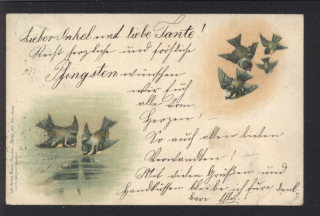 Lieber Onkel und liebe Tante!
Recht herzliche und fröhliche
Pfingsten wünschen
wir Euch
alle vom
Herzen!
So auch allen lieben
Verwandten!
Mit vielen Grüßen und
Handküssen bleibe ich Ihre dank-
bare